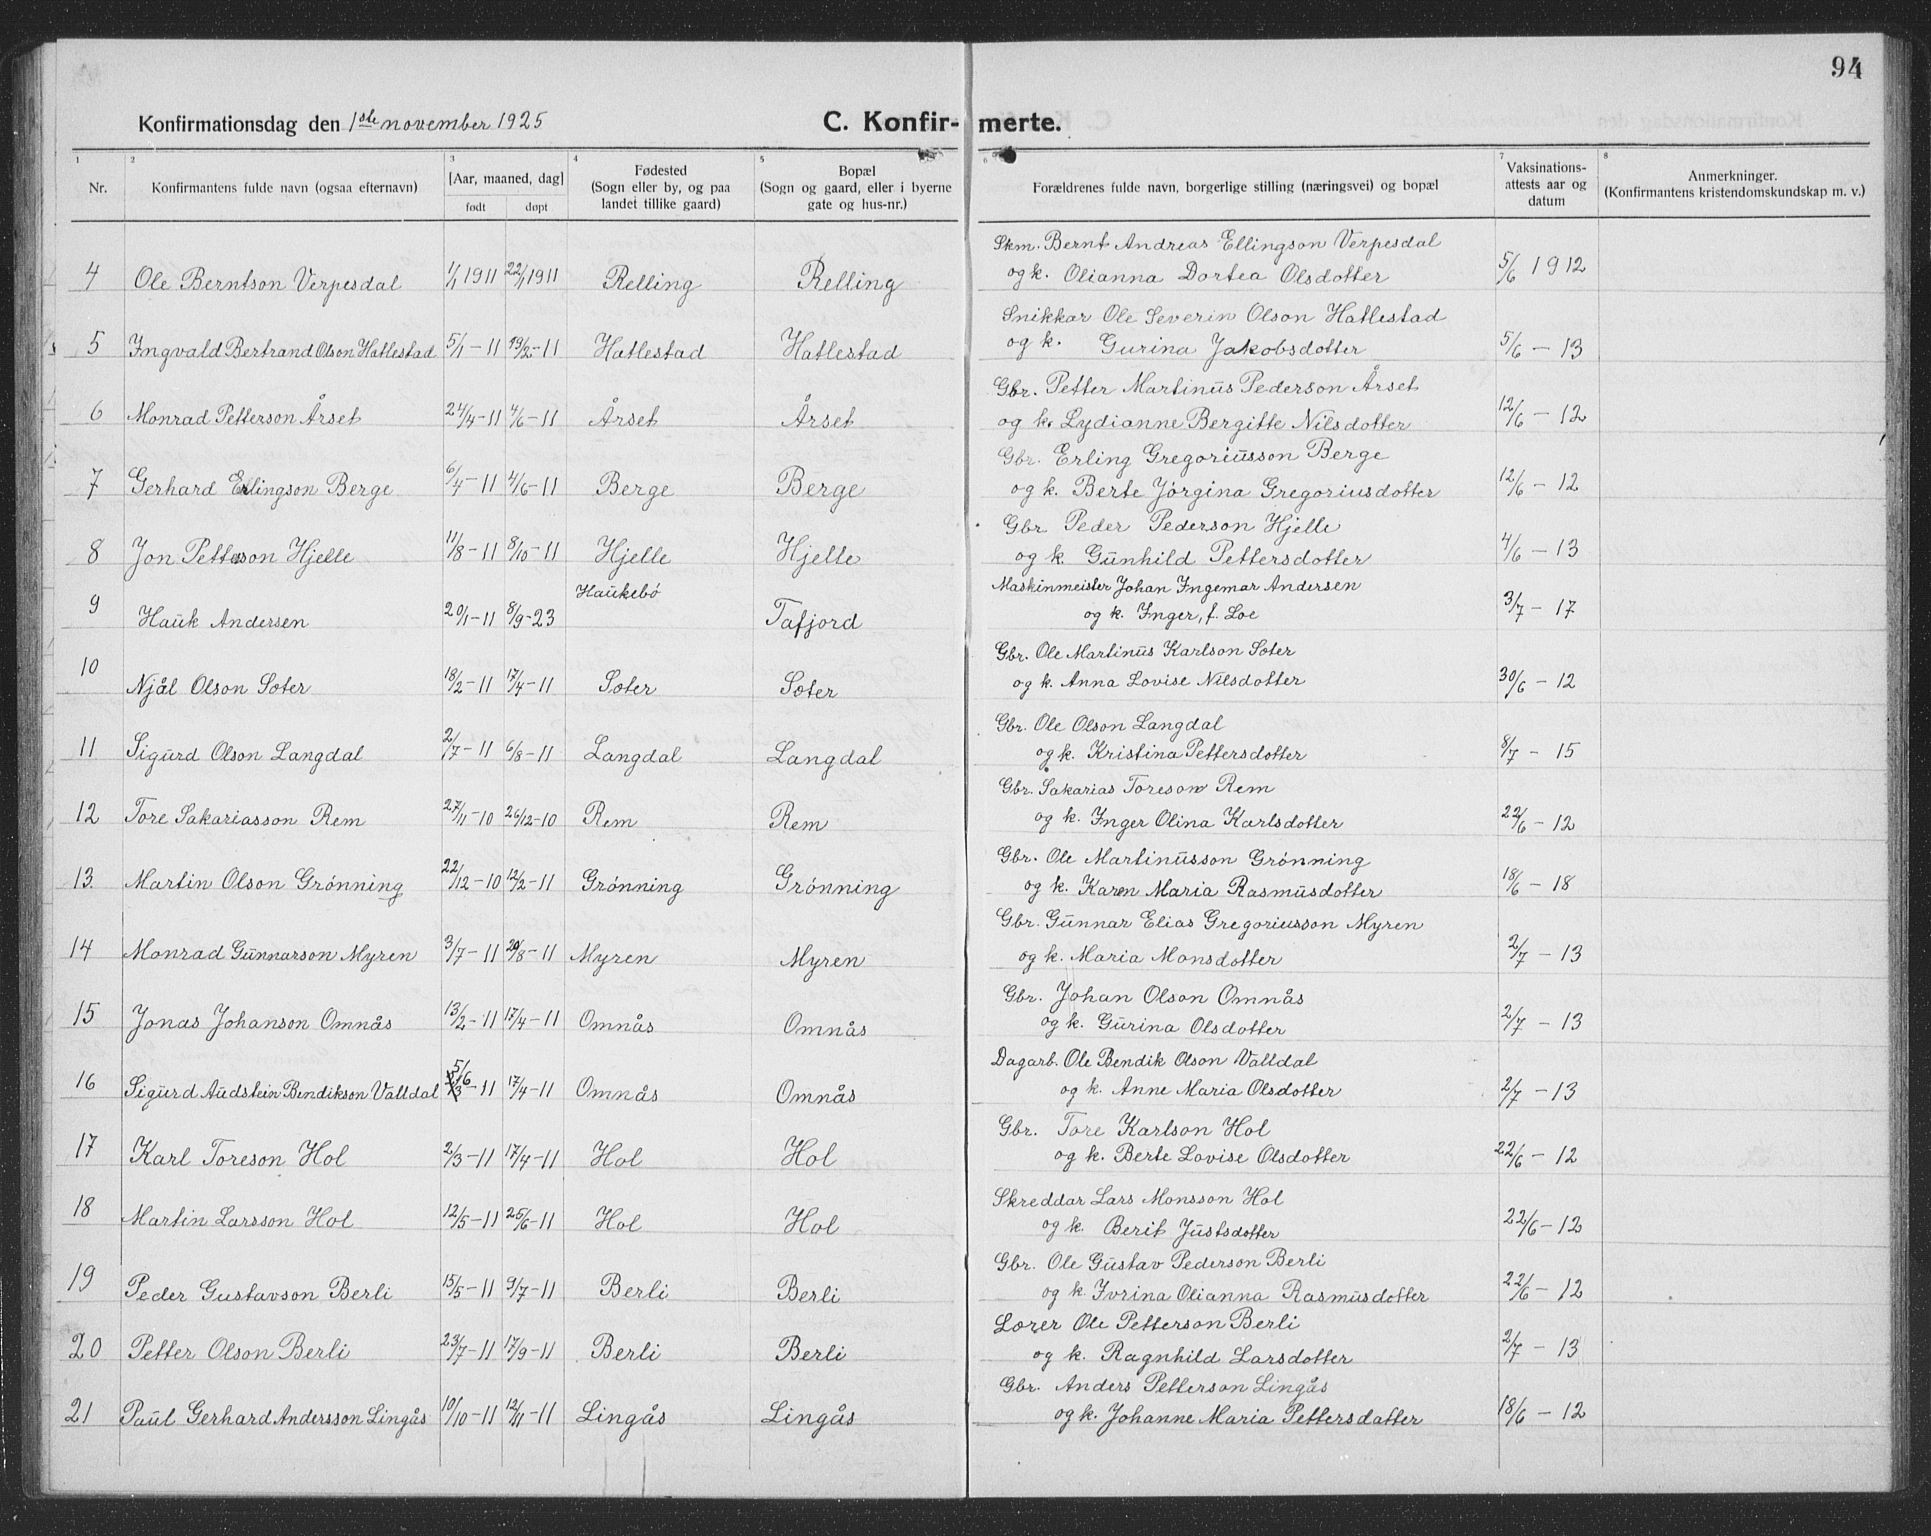 94
Konfirmationsdag den 1ste november 1925
C. Konfir-merte.
1 2 3 4 5 6 7 8
Nr. | Konfirmantens fulde navn (ogsaa efternavn) | [Aar, maaned, dag] født døpt | Fødested (Sogn eller by, og paa landet tillike gaard) | Bopæl (Sogn og gaard, eller i byerne gate og hus-nr.) | Forældrenes fulde navn, borgerlige stilling (næringsvei) og bopæl | Vaksinations-attests aar og datum | Anmerkninger. (Konfirmantens kristendomskundskap m. v.)
4 Ole Berntson Verpesdal 1/1 1911 22/1 1911 Relling Relling Skm. Bernt Andreas Ellingson Verpesdal
og k. Olianna Dortea Olsdotter 5/6 1912
5 Yngvald Bertrand Olson Hatlestad 5/1-11 19/2-11 Hatlestad Hatlestad Snikkar Ole Severin Olson Hatlestad
og k. Gurina Jakobsdotter 5/6 - 13
6 Monrad Petterson Årset 24/4-11 4/6-11 Årset Årset Gbr. Petter Martinus Pederson Årset
og k. Lydianne Bergitte Nilsdotter 12/6 - 12
7 Gerhard Erlingson Berge 6/4-11 4/6-11 Berge Berge Gbr. Erling Gregoriusson Berge
og k. Berte Jørgina Gregoriusdotter 12/6 - 12
8 Jon Petterson Hjelle 11/8-11 8/10-11 Hjelle Hjelle Gbr Peder Pederson Hjelle
og k. Gunhild Pettersdotter 4/6 - 13
9 Hauk Andersen 20/1-11 8/9-23 Haukebø Tafjord Maskinmeister Johan Yngemar Andersen
og k. Ynger, f. Loe 3/7 - 17
10 Njål Olson Sæter 18/2-11 17/4-11 Sæter Sæter Gbr. Ole Martinus Karlson Sæter
og k. Anna Lovise Nilsdotter 30/6 - 12
11 Sigurd Olson Langdal 2/7-11 6/8-11 Langdal Langdal Gbr. Ole Olson Langdal
og k. Kristina Pettersdotter 8/7 - 15
12 Tore Sakariasson Rem 27/11-10 26/12-10 Rem Rem Gbr. Sakarias Toreson Rem
og k. Ynger Olina Karlsdotter 22/6 - 12
13 Martin Olson Grønning 22/12-10 12/2-11 Grønning Grønning Gbr. Ole Martinusson Grønning
og k. Karen Maria Rasmusdotter 18/6 - 18
14 Monrad Gunnarson Myren 3/7-11 20/8-11 Myren Myren Gbr. Gunnar Elias Gregoriusson Myren
og k. Maria Monsdotter 2/7 - 13
15 Jonas Johanson Omnås 13/2-11 17/4-11 Omnås Omnås Gbr. Johan Olson Omnås
og k. Gurina Olsdotter 2/7 - 13
16 Sigurd Audstein Bendikson Valldal -11 17/4-11 Omnås Omnås Dagarb. Ole Bendik Olson Valldal
og k. Anne Maria Olsdotter 2/7 - 13
17 Karl Toreson Hol 2/3-11 17/4-11 Hol Hol Gbr. Tore Karlson Hol
og k. Berte Lovise Olsdotter 22/6 - 12
18 Martin Larsson Hol 12/5-11 25/6-11 Hol Hol Skreddar Lars Monsson Hol
og k. Berit Justsdotter 22/6 - 12
19 Peder Gustavson Berli 15/5-11 9/7-11 Berli Berli Gbr. Ole Gustav Pederson Berli
og k. Ivrina Olianna Rasmusdotter 22/6 - 12
20 Petter Olson Berli 23/7-11 17/9-11 Berli Berli Lærer Ole Petterson Berli
og k. Ragnhild Larsdotter 2/7 - 13
21 Paul Gerhard Andersson Lingås 10/10-11 12/11-11 Lingås Lingås Gbr. Anders Petterson Lingås
og k. Johanne Maria Pettersdatter 18/6 - 12